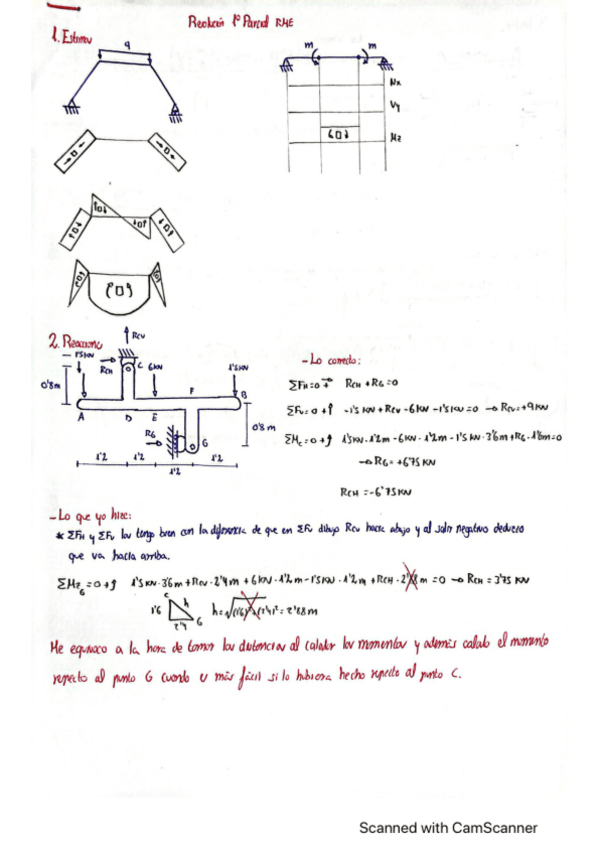 1º Parcial RME
1. Esfuerzos
q
m m
Nx
Vy
Mz
2. Reacciones
RCV
1'5KN
RCH
C
6KN
F
1'5KN
0'8m
A
D
E
B
RG
G
0'8m
1'2 1'2 1'2 1'2
1'2
- Lo correcto:
ΣFH=0 RCH + RG=0
ΣFV=0 -1'5 KN + RCV - 6KN - 1'5KN=0 → RCV=+9KN
ΣMC=0 1'5KN·1'2m - 6KN·1'2m - 1'5 KN·3'6m + RG·1'6m=0
→ RG=+6'75 KN
RCH=-6'75KN
- Lo que yo hice:
* ΣFH y ΣFV los tengo bien con la diferencia de que en ΣFV dibujo RCV hacia abajo y al salir negativo deduzco
que va hacia arriba.
ΣMZG=0 1'5KN·3'6m + RCV·2'4m + 6KN·1'2m - 1'5KN·1'2m + RCH·2'88m=0 → RCH=3'75 KN
C
1'6
h
2'4
G
h=√(1'6)²+(2'4)²=2'88m
Me equivoco a la hora de tomar las distancias al calcular los momentos y además calculo el momento
respecto al punto G cuando es más fácil si lo hubiera hecho respecto al punto C.
Scanned with CamScanner